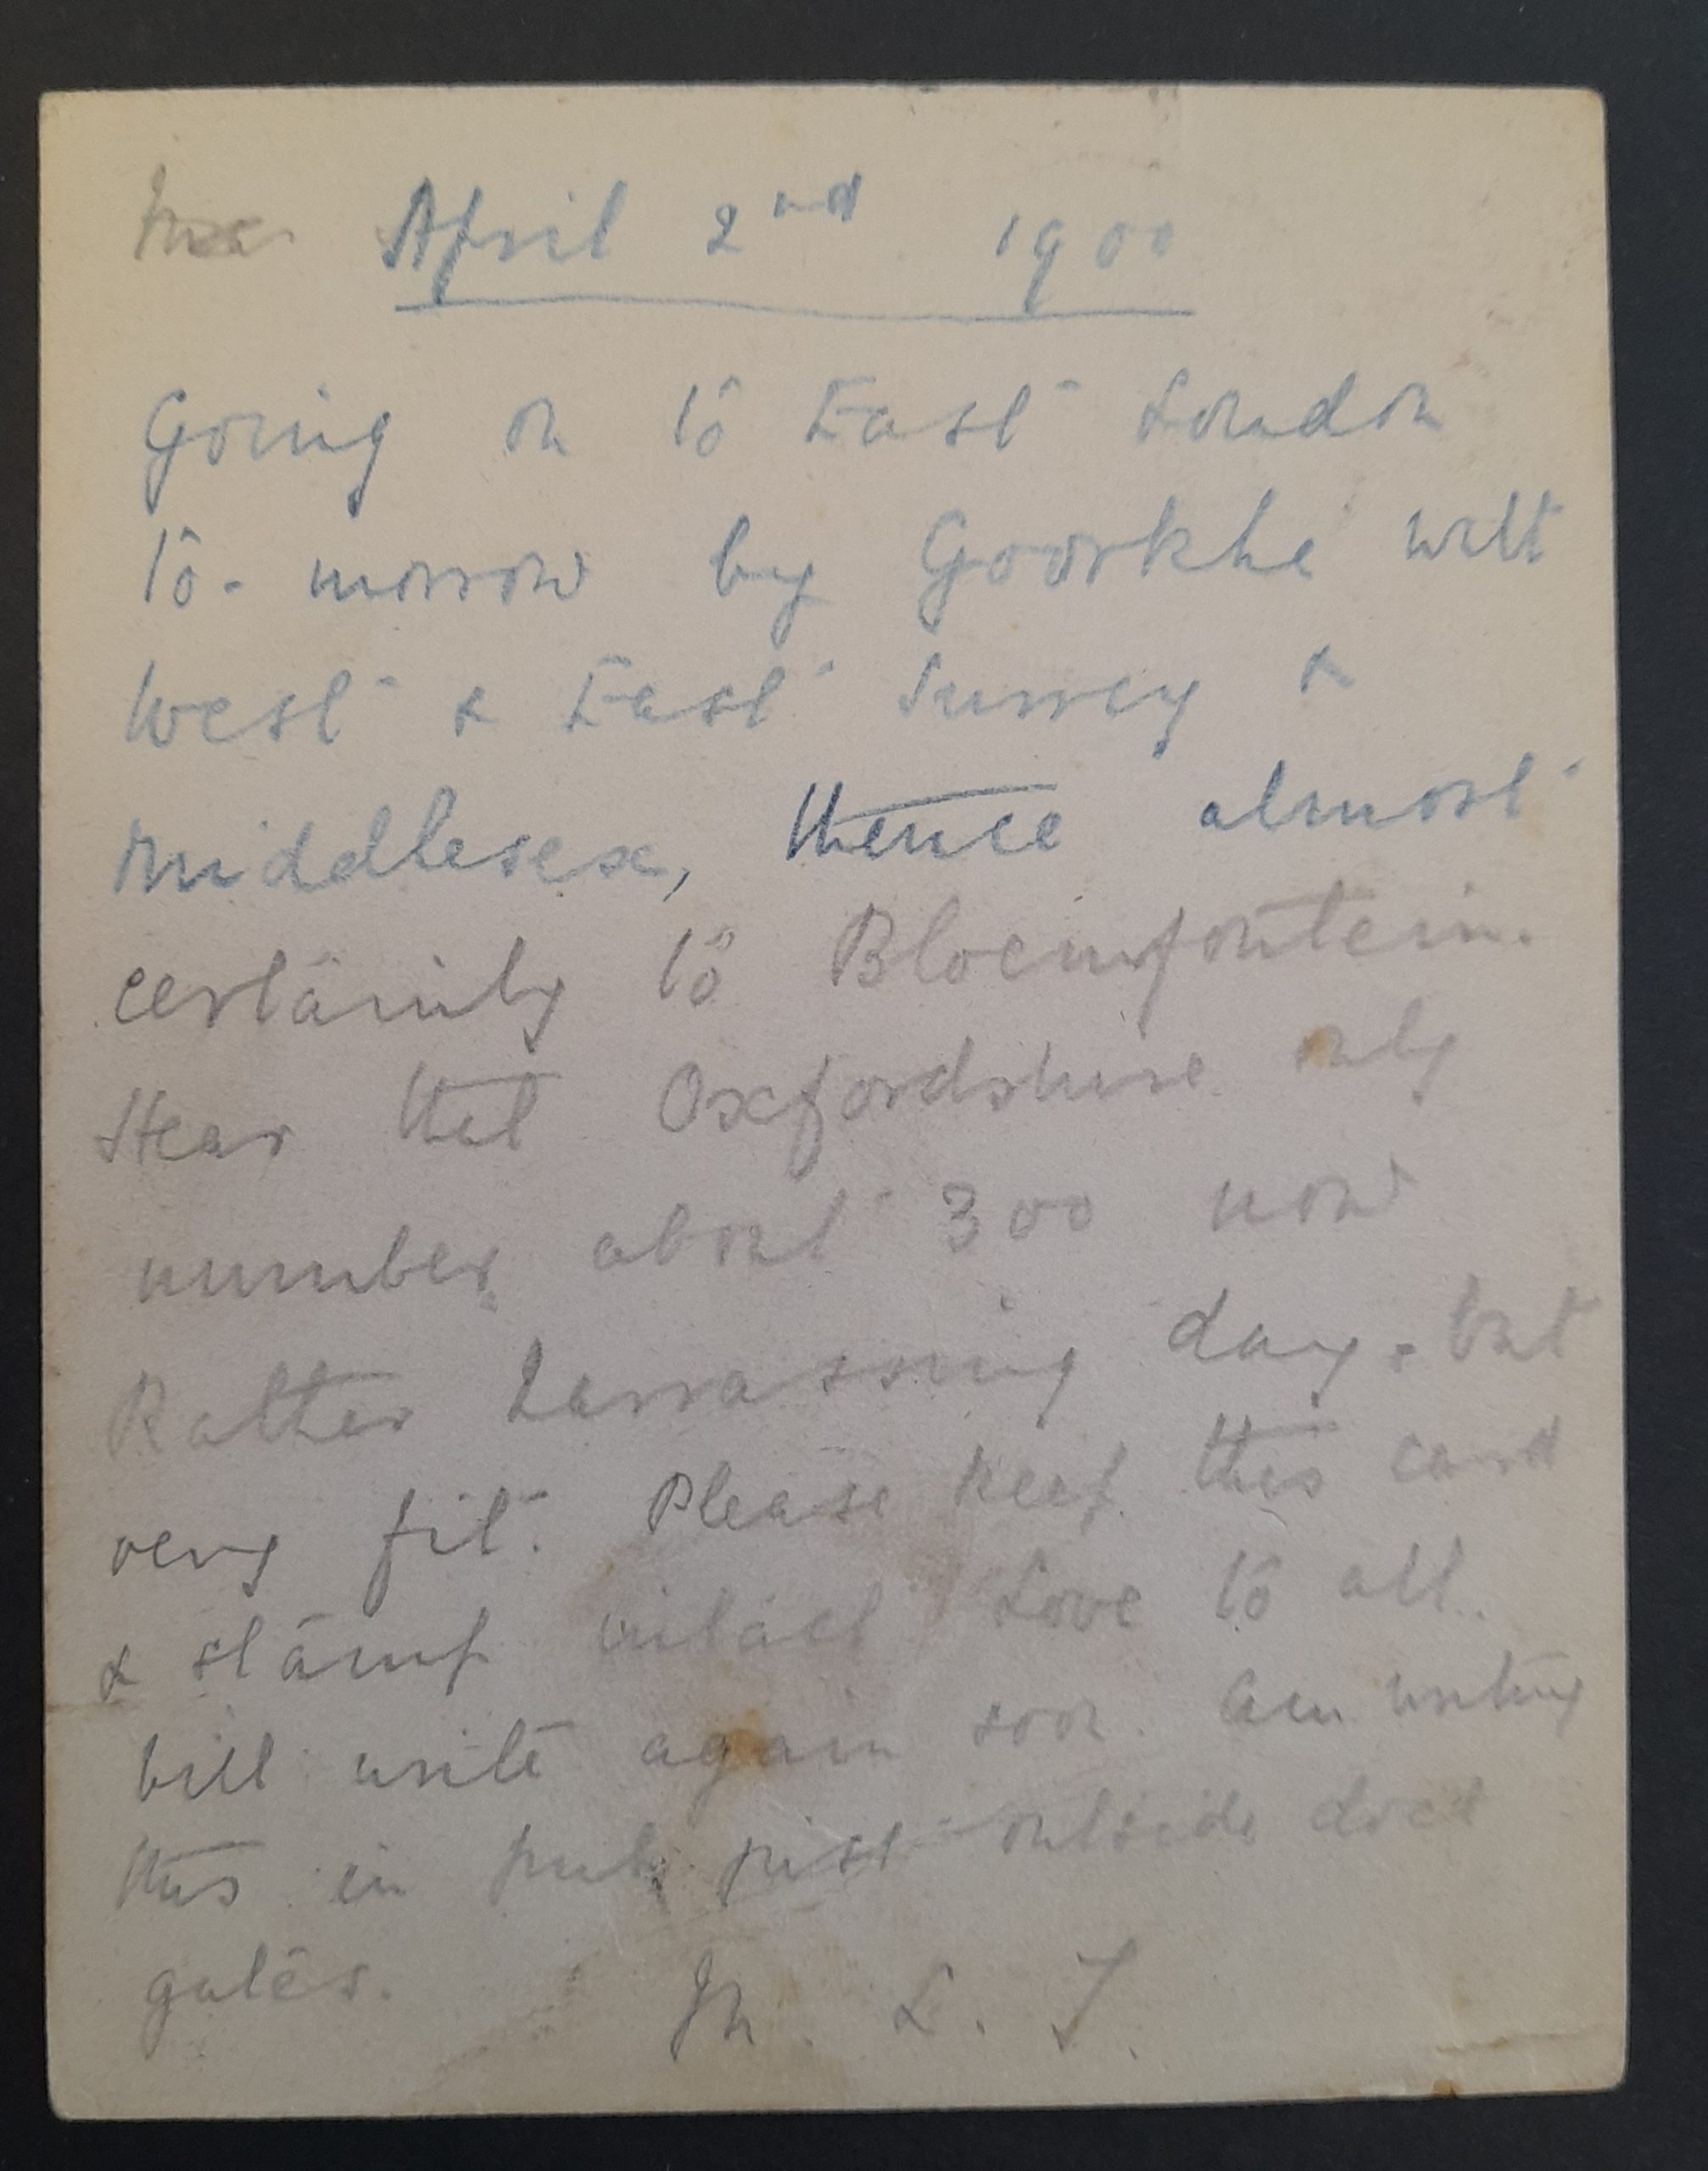 April 2nd 1900
Going on to East London
to-morrow by Goorkhe with
West & East Surrey &
Middlesex, thence almost
certainly to Bloemfontein.
Hear that Oxfordshire only
number about 300 now
Rather harrassing day. but
very fit. Please keep this card
& stamp intact Love to all.
Will write again soon. Am writing
this in pub just outside dock
gates. M. L. T.